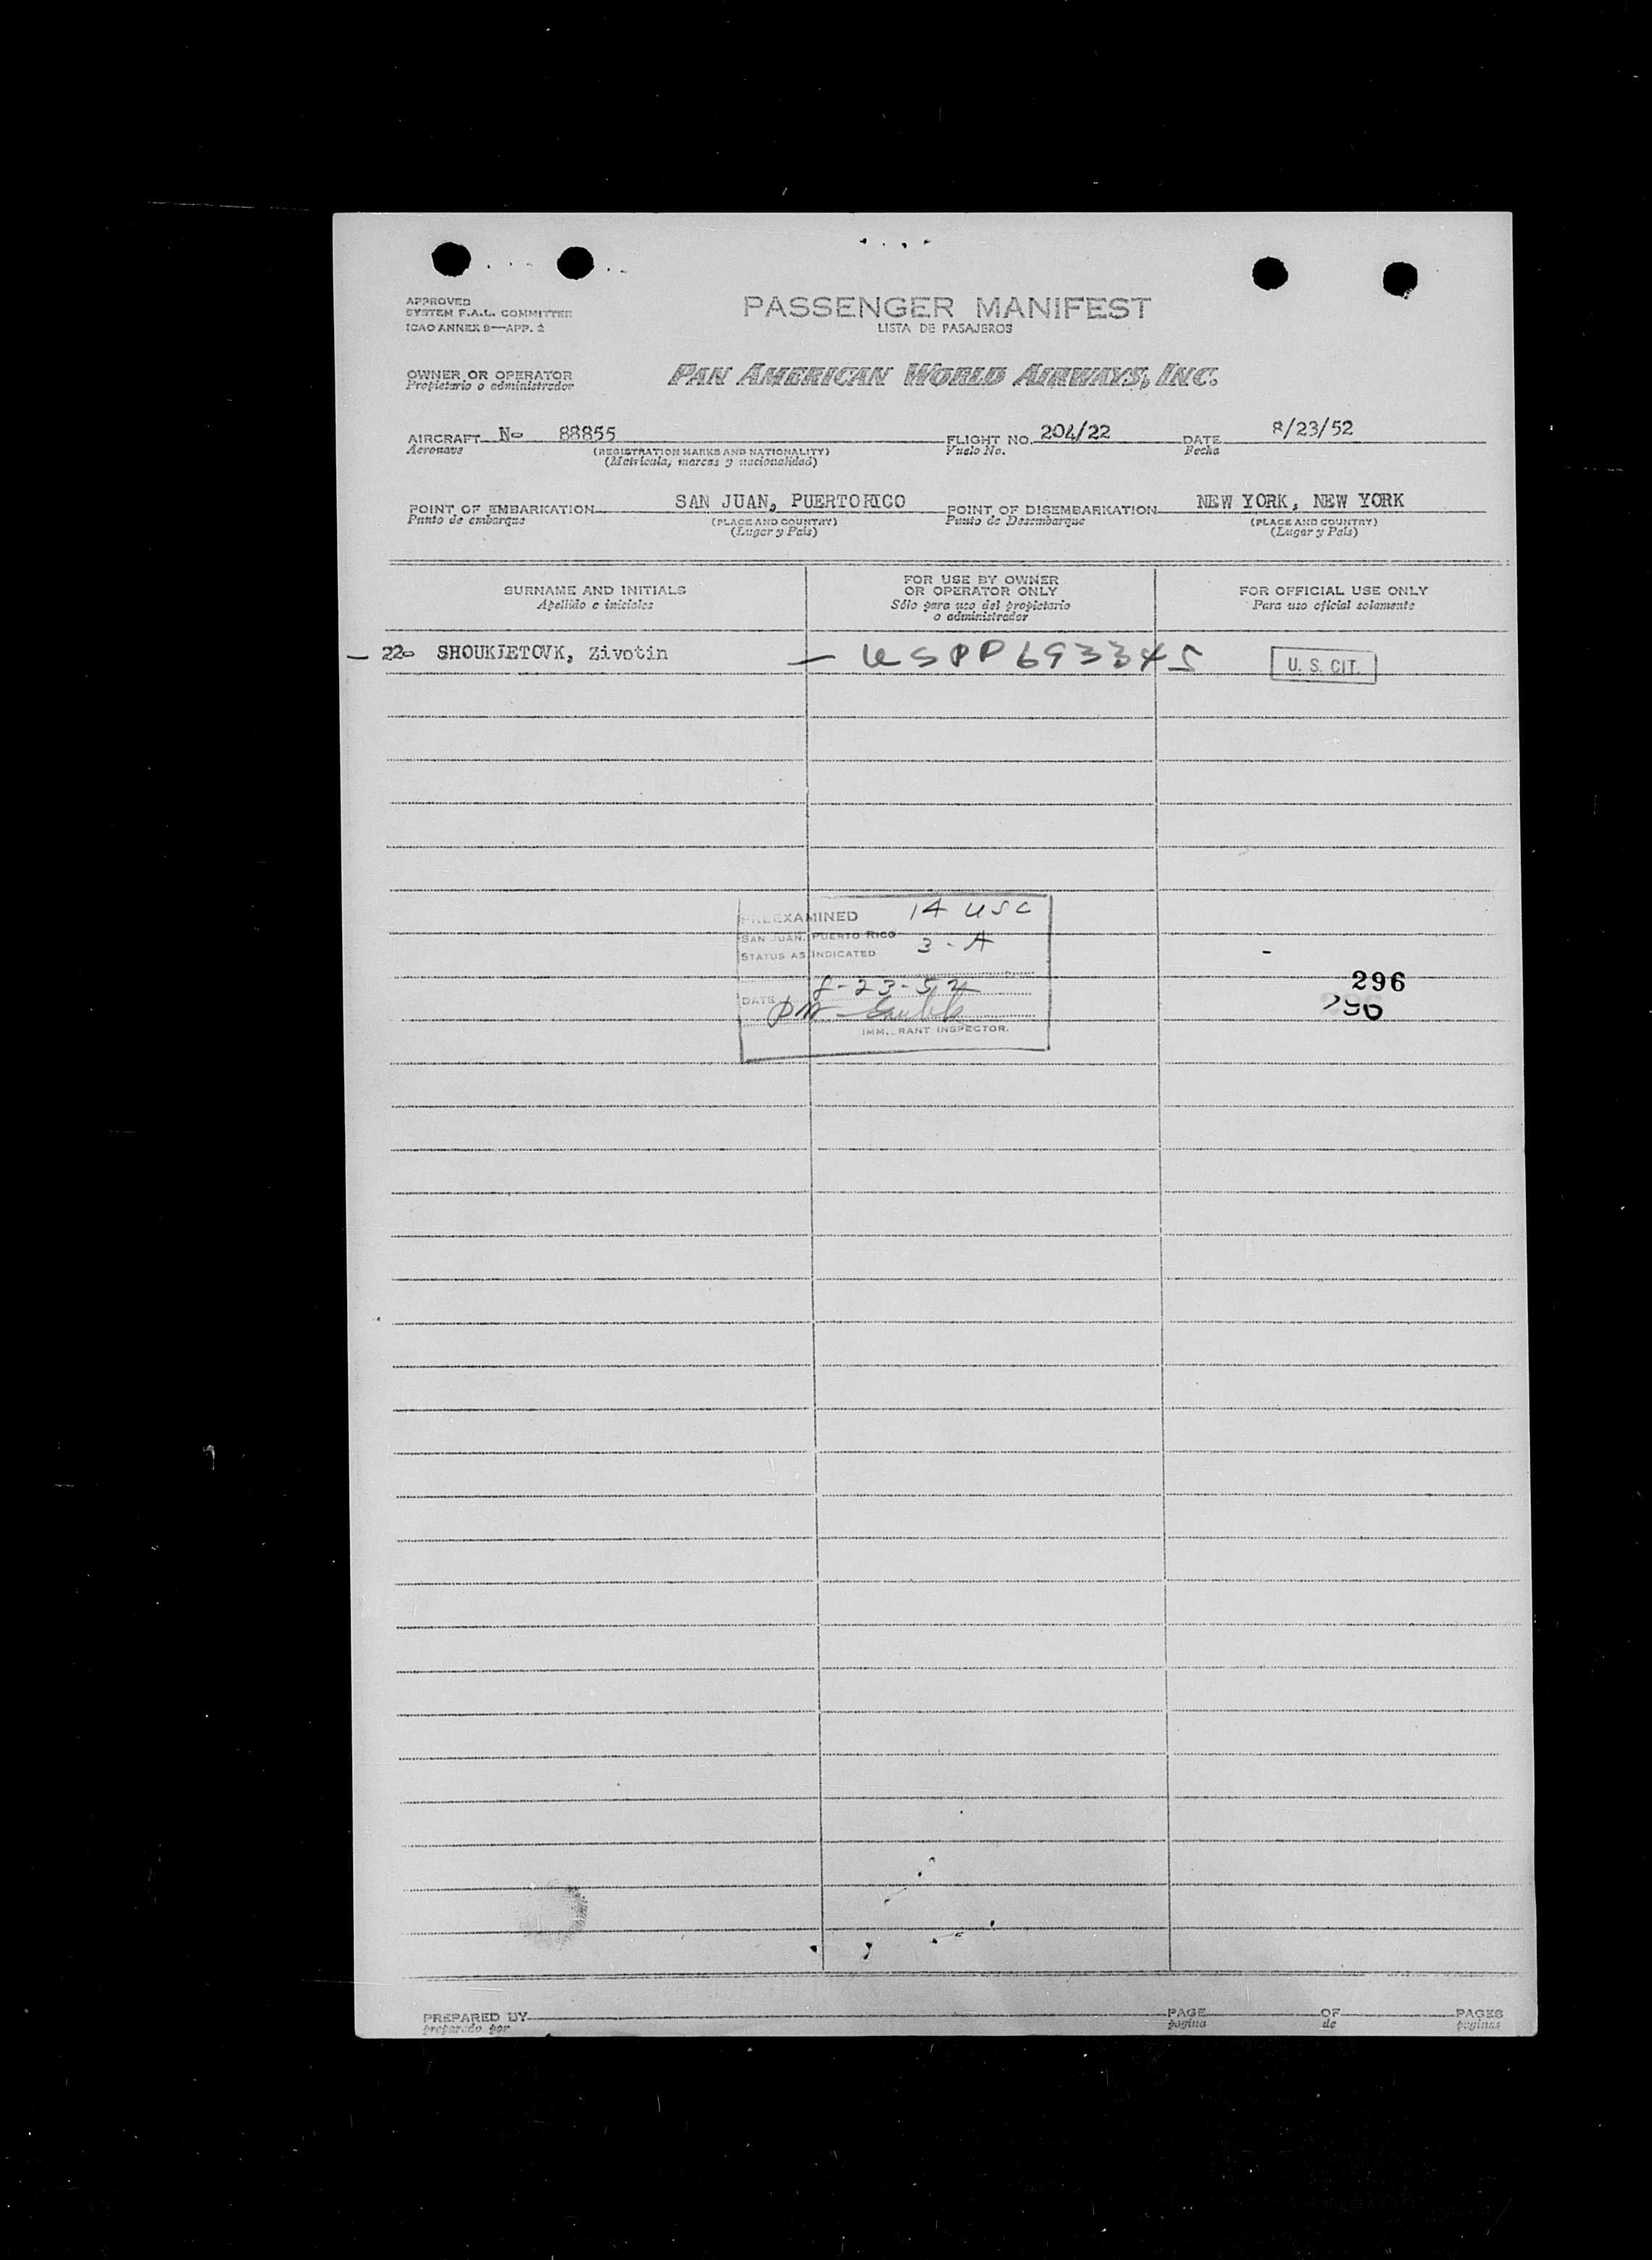 APPROVED
SYSTEM F.A.L. COMMITTEE
ICAO ANNEX 9—APP. 2
PASSENGER MANIFEST
LISTA DE PASAJEROS
OWNER OR OPERATOR
Propietario o administrador
PAN AMERICAN WORLD AIRWAYS, INC.
AIRCRAFT N- 88855 FLIGHT NO. 204/22 DATE 8/23/52
Aeronave (REGISTRATION MARKS AND NATIONALITY) Vuelo No. Fecha
(Matrícula, marcas y nacionalidad)
POINT OF EMBARKATION SAN JUAN, PUERTO RICO POINT OF DISEMBARKATION NEW YORK, NEW YORK
Punto de embarque (PLACE AND COUNTRY) Punto de Desembarque (PLACE AND COUNTRY)
(Lugar y País) (Lugar y País)
SURNAME AND INITIALS
Apellido e iniciales
FOR USE BY OWNER
OR OPERATOR ONLY
Sólo para uso del propietario
o administrador
FOR OFFICIAL USE ONLY
Para uso oficial solamente
— 22- SHOUKIETOVK, Zivotin — USPP693345 U. S. CIT.
PREEXAMINED 14 USC
SAN JUAN, PUERTO RICO 3-A
STATUS AS INDICATED
DATE 8-23-52
IMMIGRANT INSPECTOR.
296
296
PREPARED BY PAGE OF PAGES
preparado por pagina de paginas